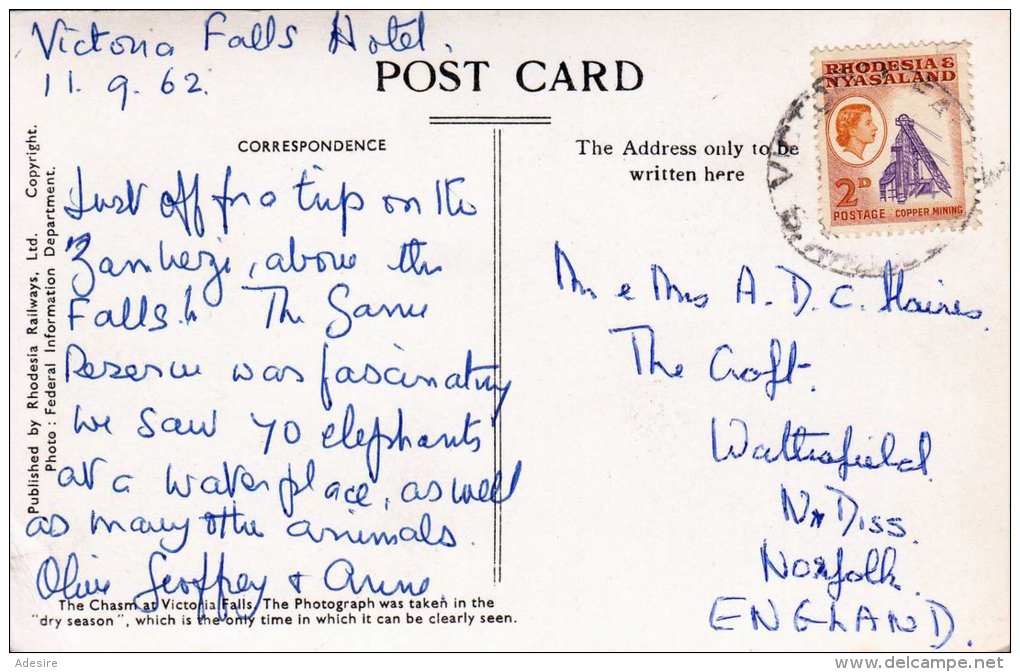 Victoria Falls Hotel.
11. 9. 62.
POST CARD
RHODESIA &
NYASALAND
2D
POSTAGE COPPER MINING
CORRESPONDENCE
The Address only to be
written here
Published by Rhodesia Railways, Ltd. Copyright.
Photo: Federal Information Department.
Just off for a trip on the
Zambezi, above the
Falls. The Game
Reserve was fascinating
we saw 70 elephants
at a water place, as well
as many other animals.
Olive Geoffrey & Anne
Mr & Mrs A. D. C. Haines.
The Croft.
Wattisfield
Nr Diss.
Norfolk.
ENGLAND.
The Chasm at Victoria Falls. The Photograph was taken in the
"dry season", which is the only time in which it can be clearly seen.
Adesire
www.delcampe.net